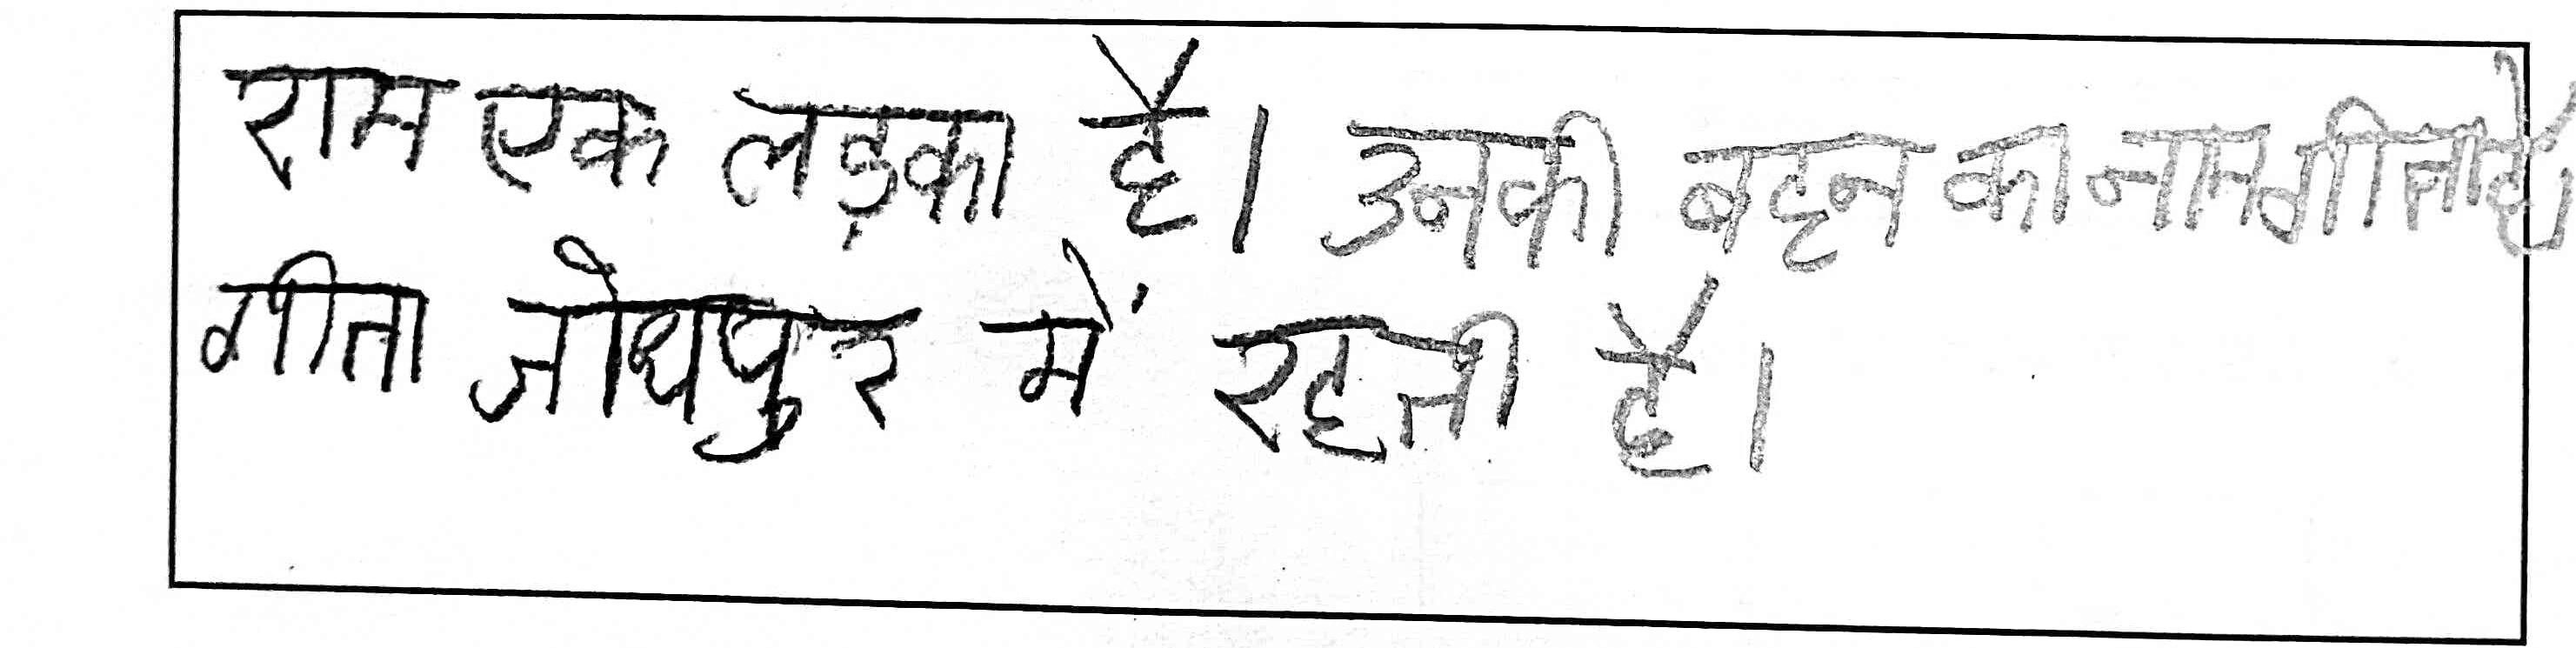 राम एक लड़का है। उनकी बहन का नाम गीता है।
गीता जोधपुर में रहती है।